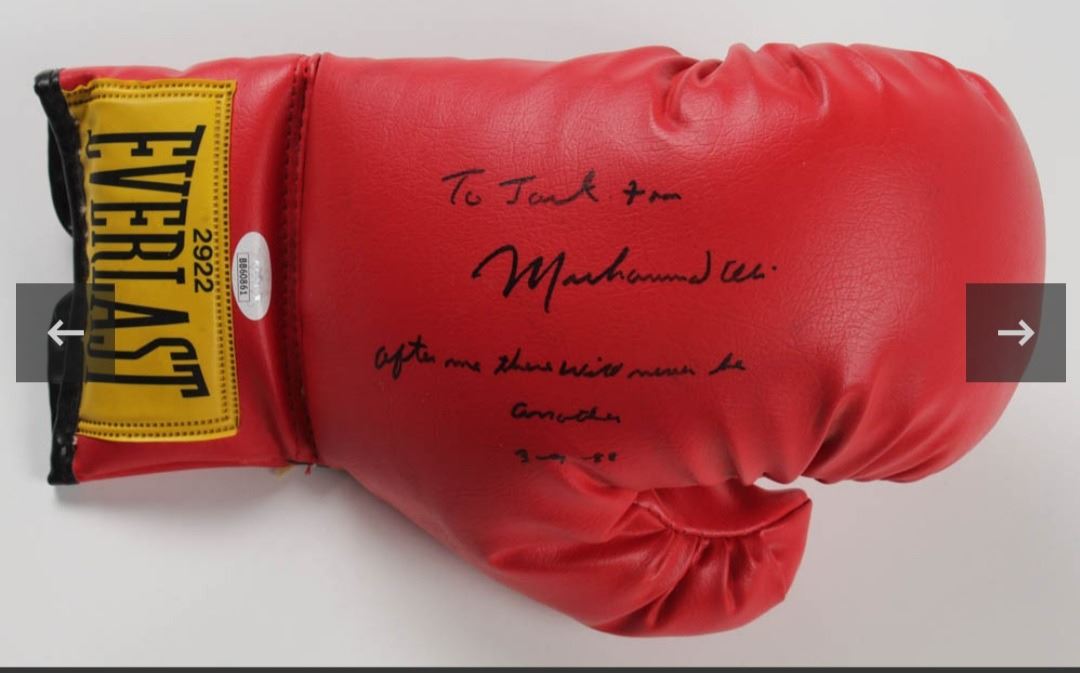 EVERLAST
2922
BB60861
To Jack from
Muhammad Ali
after me there will never be
another